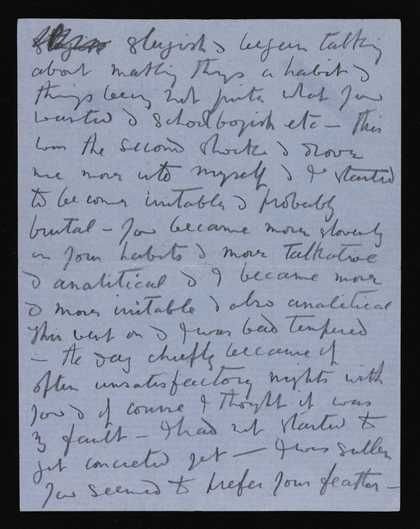 sluyish & began talking
about making things a habit &
things being not quite what you
wanted & schoolboyish etc — this
was the second shock & drove
me more into myself & I started
to become irritable & probably
brutal — you became more slovenly
in your habits & more talkative
& analitical & I became more
& more irritable & also analitical
This went on & I was bad tempered
— the day chiefly because of
often unsatisfactory nights with
you & of course I thought it was
my fault — I had not started to
get conceited yet — I was sullen
You seemed to prefer your father —